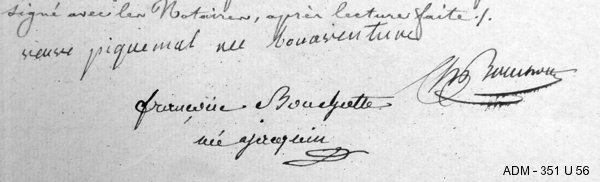 signé avec les Notaires, après lecture faite /.
veuve piquemal née bonaventure
françoise Bouchotte
née jacquin
ADM - 351 U 56